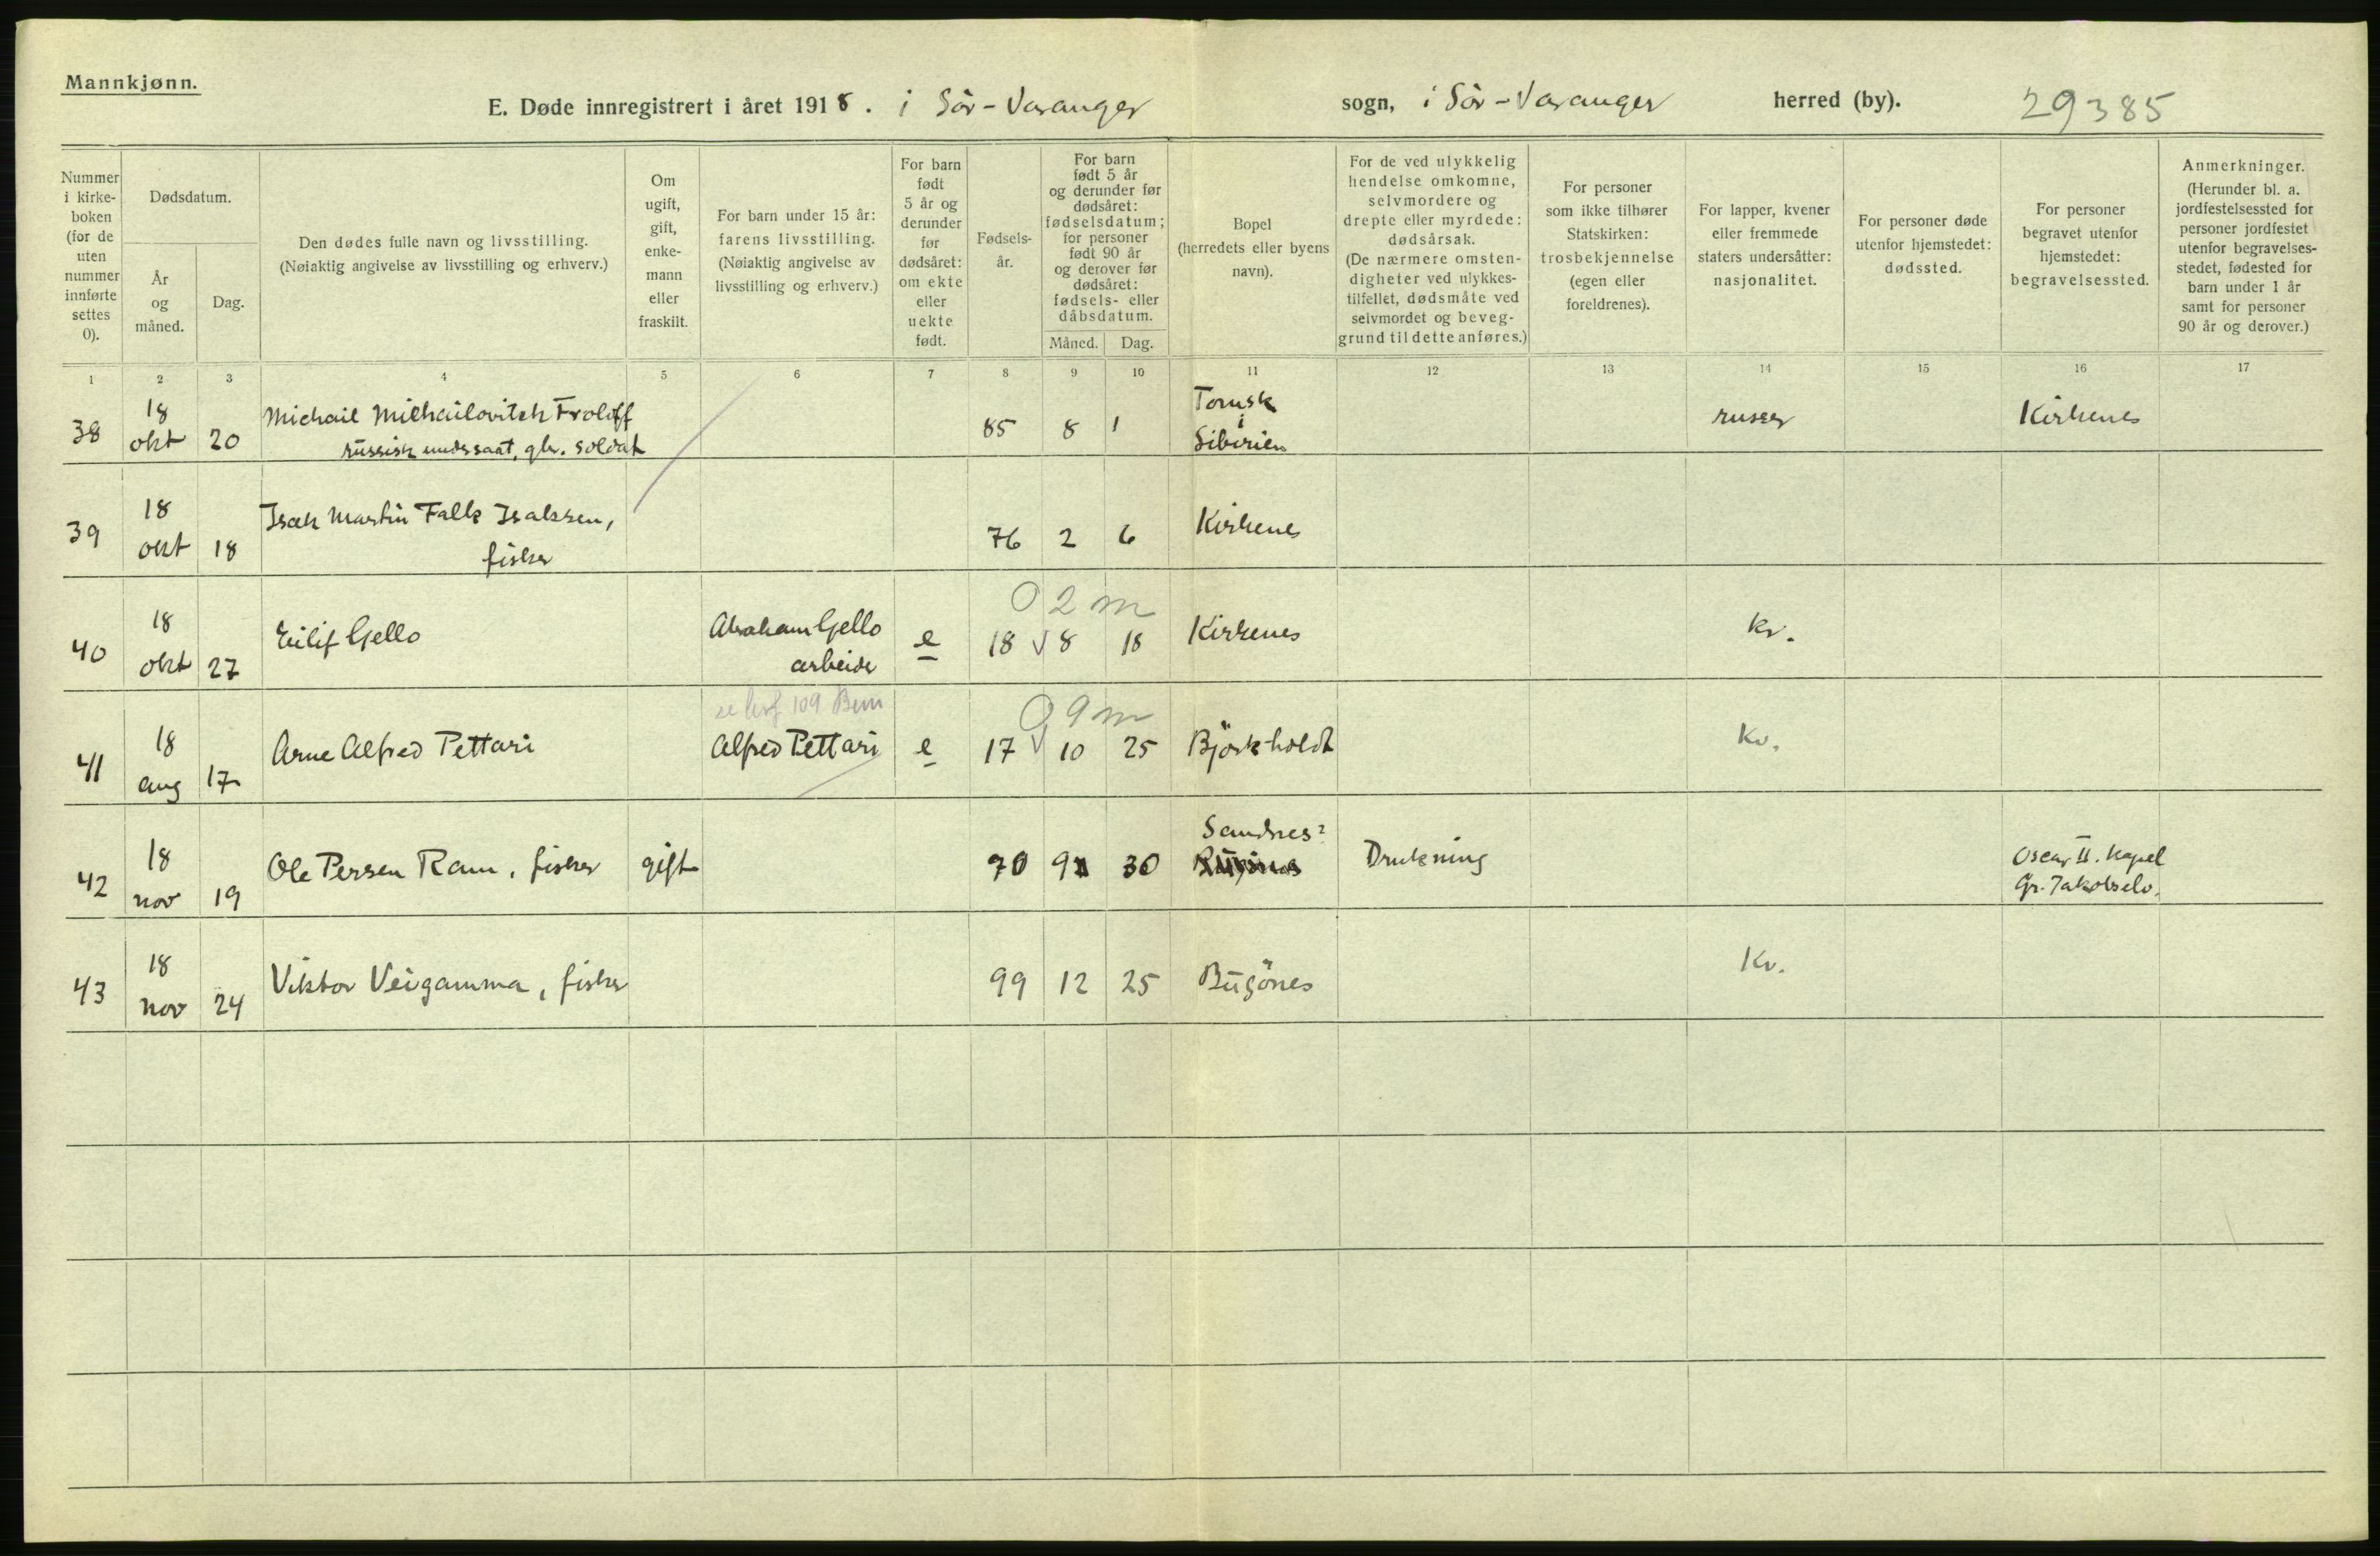 Mannkjønn.
E. Døde innregistrert i året 1918. i Sör-Varanger sogn, i Sör-Varanger herred (by). 29385
Nummer
i kirke-
boken
(for de
uten
nummer
innførte
settes
0).
Dødsdatum.
År
og
måned.
Dag.
Den dødes fulle navn og livsstilling.
(Nøiaktig angivelse av livsstilling og erhverv.)
Om
ugift,
gift,
enke-
mann
eller
fraskilt.
For barn under 15 år:
farens livsstilling.
(Nøiaktig angivelse av
livsstilling og erhverv.)
For barn
født
5 år og
derunder
før
dødsåret:
om ekte
eller
uekte
født.
Fødsels-
år.
For barn
født 5 år
og derunder før
dødsåret:
fødselsdatum;
for personer
født 90 år
og derover før
dødsåret:
fødsels- eller
dåbsdatum.
Måned.
Dag.
Bopel
(herredets eller byens
navn).
For de ved ulykkelig
hendelse omkomne,
selvmordere og
drepte eller myrdede:
dødsårsak.
(De nærmere omsten-
digheter ved ulykkes-
tilfellet, dødsmåte ved
selvmordet og beveg-
grund til dette anføres.)
For personer
som ikke tilhører
Statskirken:
trosbekjennelse
(egen eller
foreldrenes).
For lapper, kvener
eller fremmede
staters undersåtter:
nasjonalitet.
For personer døde
utenfor hjemstedet:
dødssted.
For personer
begravet utenfor
hjemstedet:
begravelsessted.
Anmerkninger.
(Herunder bl. a.
jordfestelsessted for
personer jordfestet
utenfor begravelses-
stedet, fødested for
barn under 1 år
samt for personer
90 år og derover.)
1 2 3 4 5 6 7 8 9 10 11 12 13 14 15 16 17
38 18 okt 20 Michail Michailovitch Froloff
russisk undersaat, glv. soldat
85 8 1
Tomsk
i
Sibirien
russer Kirkenes
39 18 okt 18 Isak Martin Falk Isaksen,
fisker
76 2 6 Kirkenes
0 2 m
40 18 okt 27 Eilif Gjello Abraham Gjello
arbeider
e 18 8 18 Kirkenes kv.
109
0 9 m
41 18 aug 17 Arne Alfred Pettari Alfred Pettari e 17 10 25 Björkholdt kv.
42 18 nov 19 Ole Persen Ram, fisker gift 70 9 30 Sandnes? Drukning
Oscar II. Kapel
Gr. Jakobselv.
43 18 nov 24 Viktor Veigamma, fisker 99 12 25 Bugönes kv.